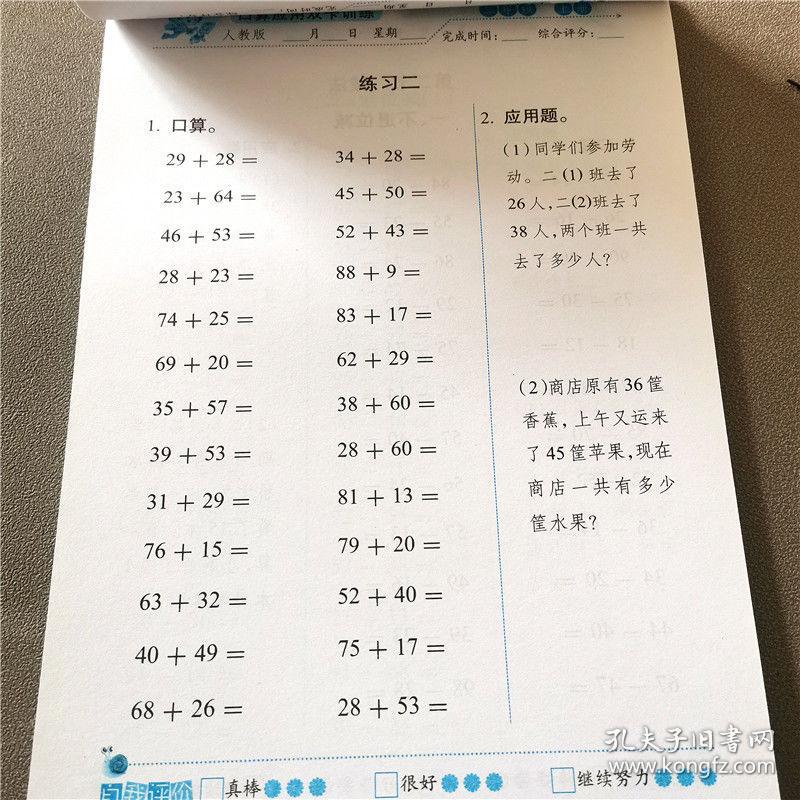 口算应用效卡训练
人教版 月 日 星期 完成时间： 综合评分：
练习二
1. 口算。
29 + 28 = 34 + 28 =
23 + 64 = 45 + 50 =
46 + 53 = 52 + 43 =
28 + 23 = 88 + 9 =
74 + 25 = 83 + 17 =
69 + 20 = 62 + 29 =
35 + 57 = 38 + 60 =
39 + 53 = 28 + 60 =
31 + 29 = 81 + 13 =
76 + 15 = 79 + 20 =
63 + 32 = 52 + 40 =
40 + 49 = 75 + 17 =
68 + 26 = 28 + 53 =
2. 应用题。
(1)同学们参加劳
动。二(1)班去了
26人,二(2)班去了
38人,两个班一共
去了多少人?
(2)商店原有36筐
香蕉,上午又运来
了45筐苹果,现在
商店一共有多少
筐水果?
自我评价 真棒 很好 继续努力
孔夫子旧书网
www.kongfz.com